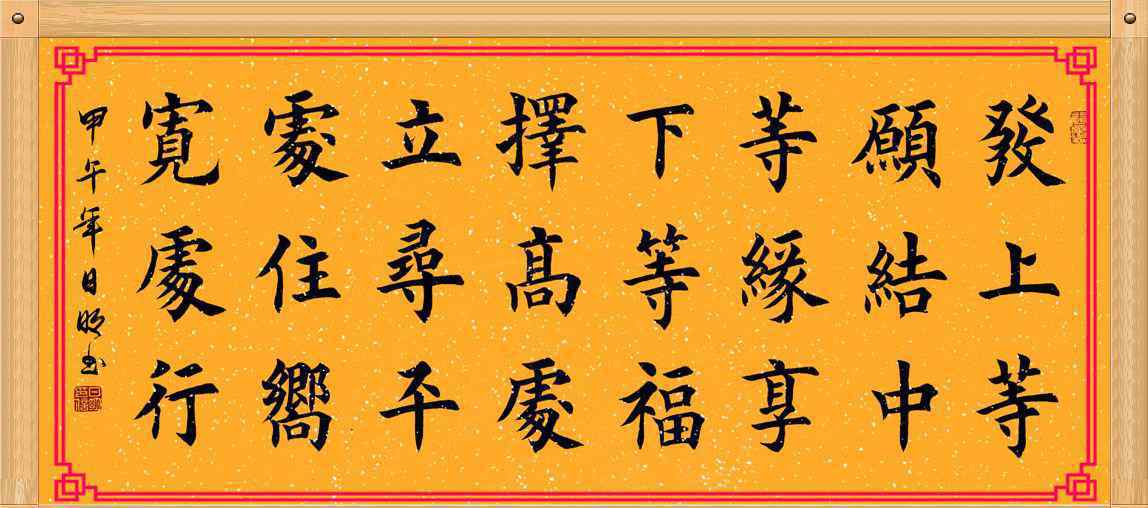 發上等
願結中
等緣享
下等福
擇高處
立尋平
處住嚮
寬處行
甲午年日明书